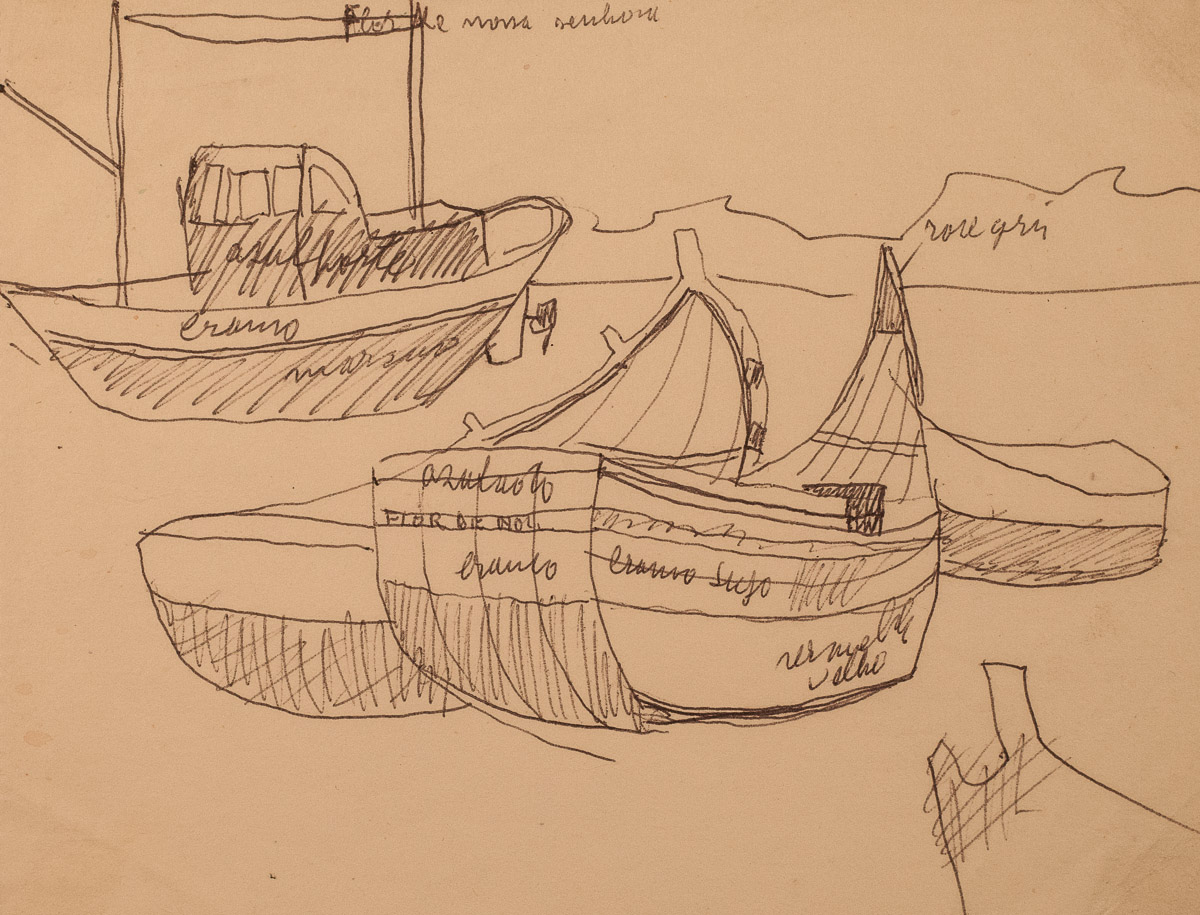 Flor de nossa senhora
rose gris
azul forte
branco
azul
FLOR DE NOS
branco
branco sujo
vermelho
velho